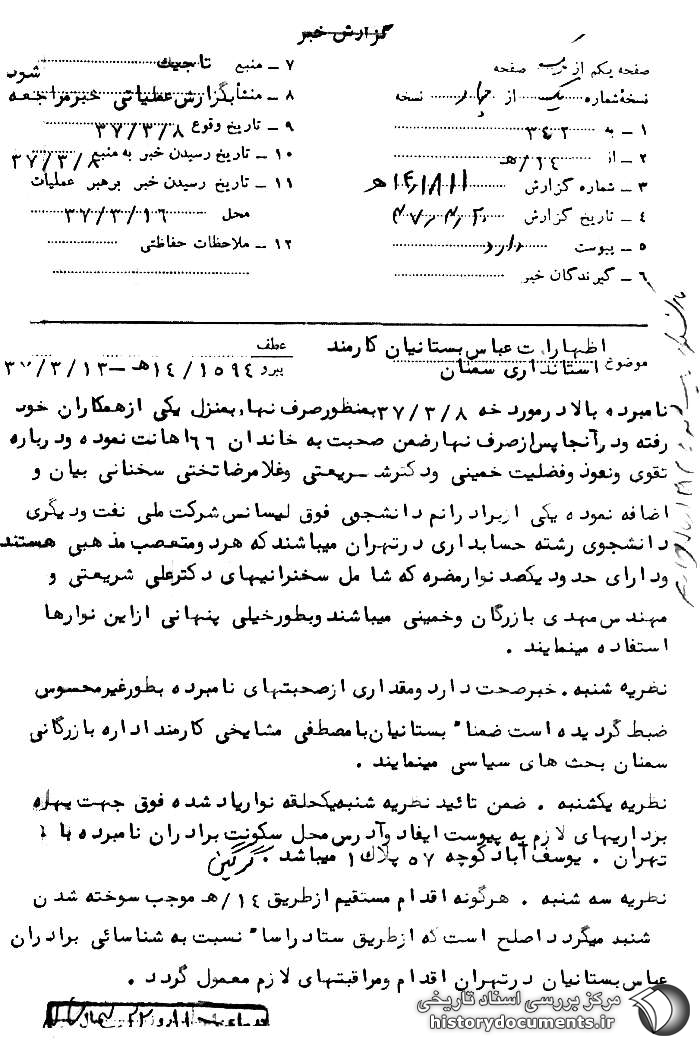 گزارش خبر
صفحه یکم از یک صفحه
نسخه شماره یک از چهار نسخه
۱ ـ به ۳۴۲
۲ ـ از ۱۴/هـ
۳ ـ شماره گزارش
۴ ـ تاریخ گزارش
۵ ـ پیوست دارد
۶ ـ گیرندگان خبر
۷ ـ منبع تاجیک
۸ ـ منشأ بگزارش عملیاتی خبر مراجعه شود
۹ ـ تاریخ وقوع ۳۷/۳/۸
۱۰ ـ تاریخ رسیدن خبر به منبع ۳۷/۳/۸
۱۱ ـ تاریخ رسیدن خبر برهبر عملیات
محل ۳۷/۳/۱۶
۱۲ ـ ملاحظات حفاظتی
موضوع اظهارات عباس بستانیان کارمند
استانداری سمنان
عطف
پیرو ۱۴/۱۵۹۴هـ ـ ۳۷/۳/۱۳
نامبرده بالا در مورخه ۳۷/۳/۸ بمنظور صرف نهار بمنزل یکی از همکاران خود
رفته و در آنجا پس از صرف نهار ضمن صحبت به خاندان ۶۶ اهانت نموده و درباره
تقوی و نفوذ وفضلیت خمینی و دکتر شریعتی وغلامرضا تختی سخنانی بیان و
اضافه نموده یکی از برادرانم دانشجوی فوق لیسانس شرکت ملی نفت و دیگری
دانشجوی رشته حسابداری در تهران میباشند که هر دو متعصب مذهبی هستند
و دارای حدود یکصد نوار مضره که شامل سخنرانیهای دکتر علی شریعتی و
مهندس مهدی بازرگان وخمینی میباشند وبطور خیلی پنهانی از این نوارها
استفاده مینمایند .
نظریه شنبه . خبر صحت دارد ومقداری از صحبتهای نامبرده بطور غیر محسوس
ضبط گردیده است ضمناً بستانیان با مصطفی مشایخی کارمند اداره بازرگانی
سمنان بحث های سیاسی مینمایند .
نظریه یکشنبه . ضمن تائید نظریه شنبه یکحلقه نوار یاد شده فوق جهت بهره
برداریهای لازم به پیوست ایفاد وآدرس محل سکونت برادران نامبرده بالا
تهران . یوسف آباد کوچه ۵۷ پلاک ۱ میباشد . گرگین
نظریه سه شنبه . هرگونه اقدام مستقیم از طریق ۱۴/هـ موجب سوخته شدن
شنبه میگردد اصلح است که از طریق ستاد راساً نسبت به شناسائی برادران
عباس بستانیان در تهران اقدام ومراقبتهای لازم معمول گردد .
مرکز بررسی اسناد تاریخی
historydocuments.ir